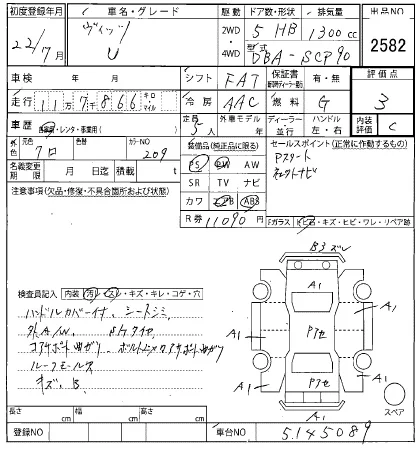 初度登録年月 車名・グレード 駆動 ドア数・形状 排気量 出品NO
22/7月 ヴィッツ U 2WD・4WD 5 HB 1300 cc 2582
型式 DBA-SCP90
車検 年 月 シフト FAT 保証書 有・無 評価点
走行 11万7千866 キロ マイル 冷房 AAC 燃料 G 3
車歴 自家用・レンタ・事業用( ) 定員 5人 外車モデル 年 ディーラー 並行 ハンドル 左・右 内装評価 C
外色 元色 クロ 色替 カラーNO 209 装備品(純正品に限る) セールスポイント(正常に作動するもの)
名義変更期限 月 日迄 積載 t PS PW AW Pスタート
注意事項(欠品・修復・不具合箇所および状態) SR TV ナビ
カワ エアB ABS
R券 11090円 Fガラス ヒビ・キズ・ヒビ・ワレ・リペア跡
B3 ズレ
検査員記入 内装 汚レ・スレ・キズ・キレ・コゲ・穴 A1
ハンドルカバー付、シートシミ
外A/W、 Sタイヤ A1 Pアセ A1
コアサポート曲ガリ、
ルーフモールズレ A1 Pアセ A1
キズ、B
A1 スペア
長さ cm 幅 cm 高さ cm
登録NO 車台NO 5145089